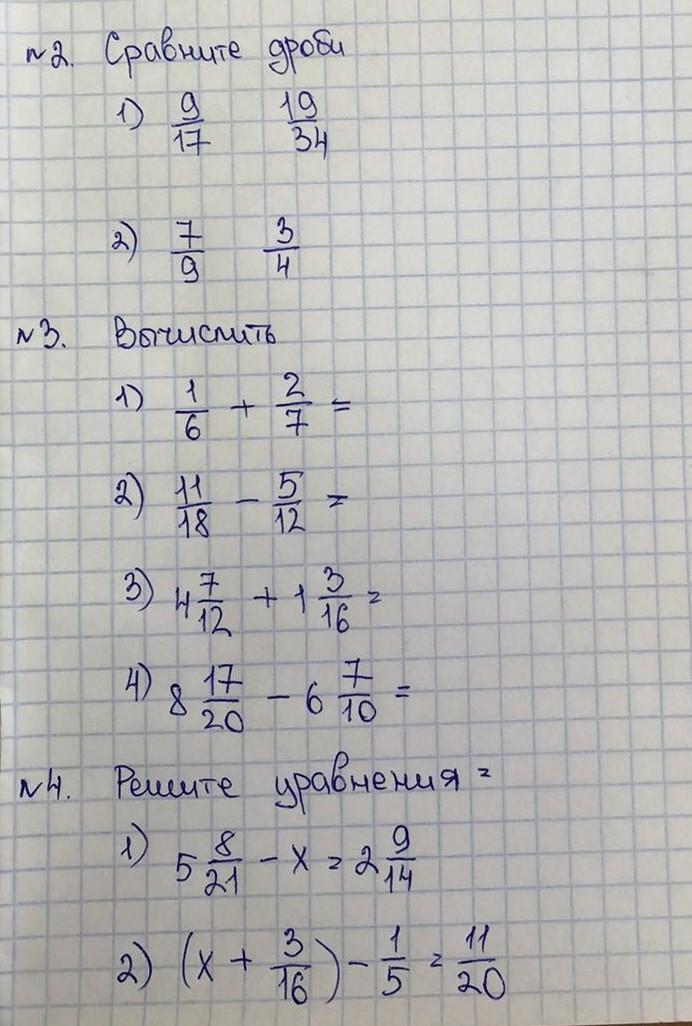 №2. Сравните дроби
1) 9/17 19/34
2) 7/9 3/4
№3. Вычислить
1) 1/6 + 2/7 =
2) 11/18 - 5/12 =
3) 4 7/12 + 1 3/16 =
4) 8 17/20 - 6 7/10 =
№4. Решите уравнения =
1) 5 8/21 - x = 2 9/14
2) (x + 3/16) - 1/5 = 11/20